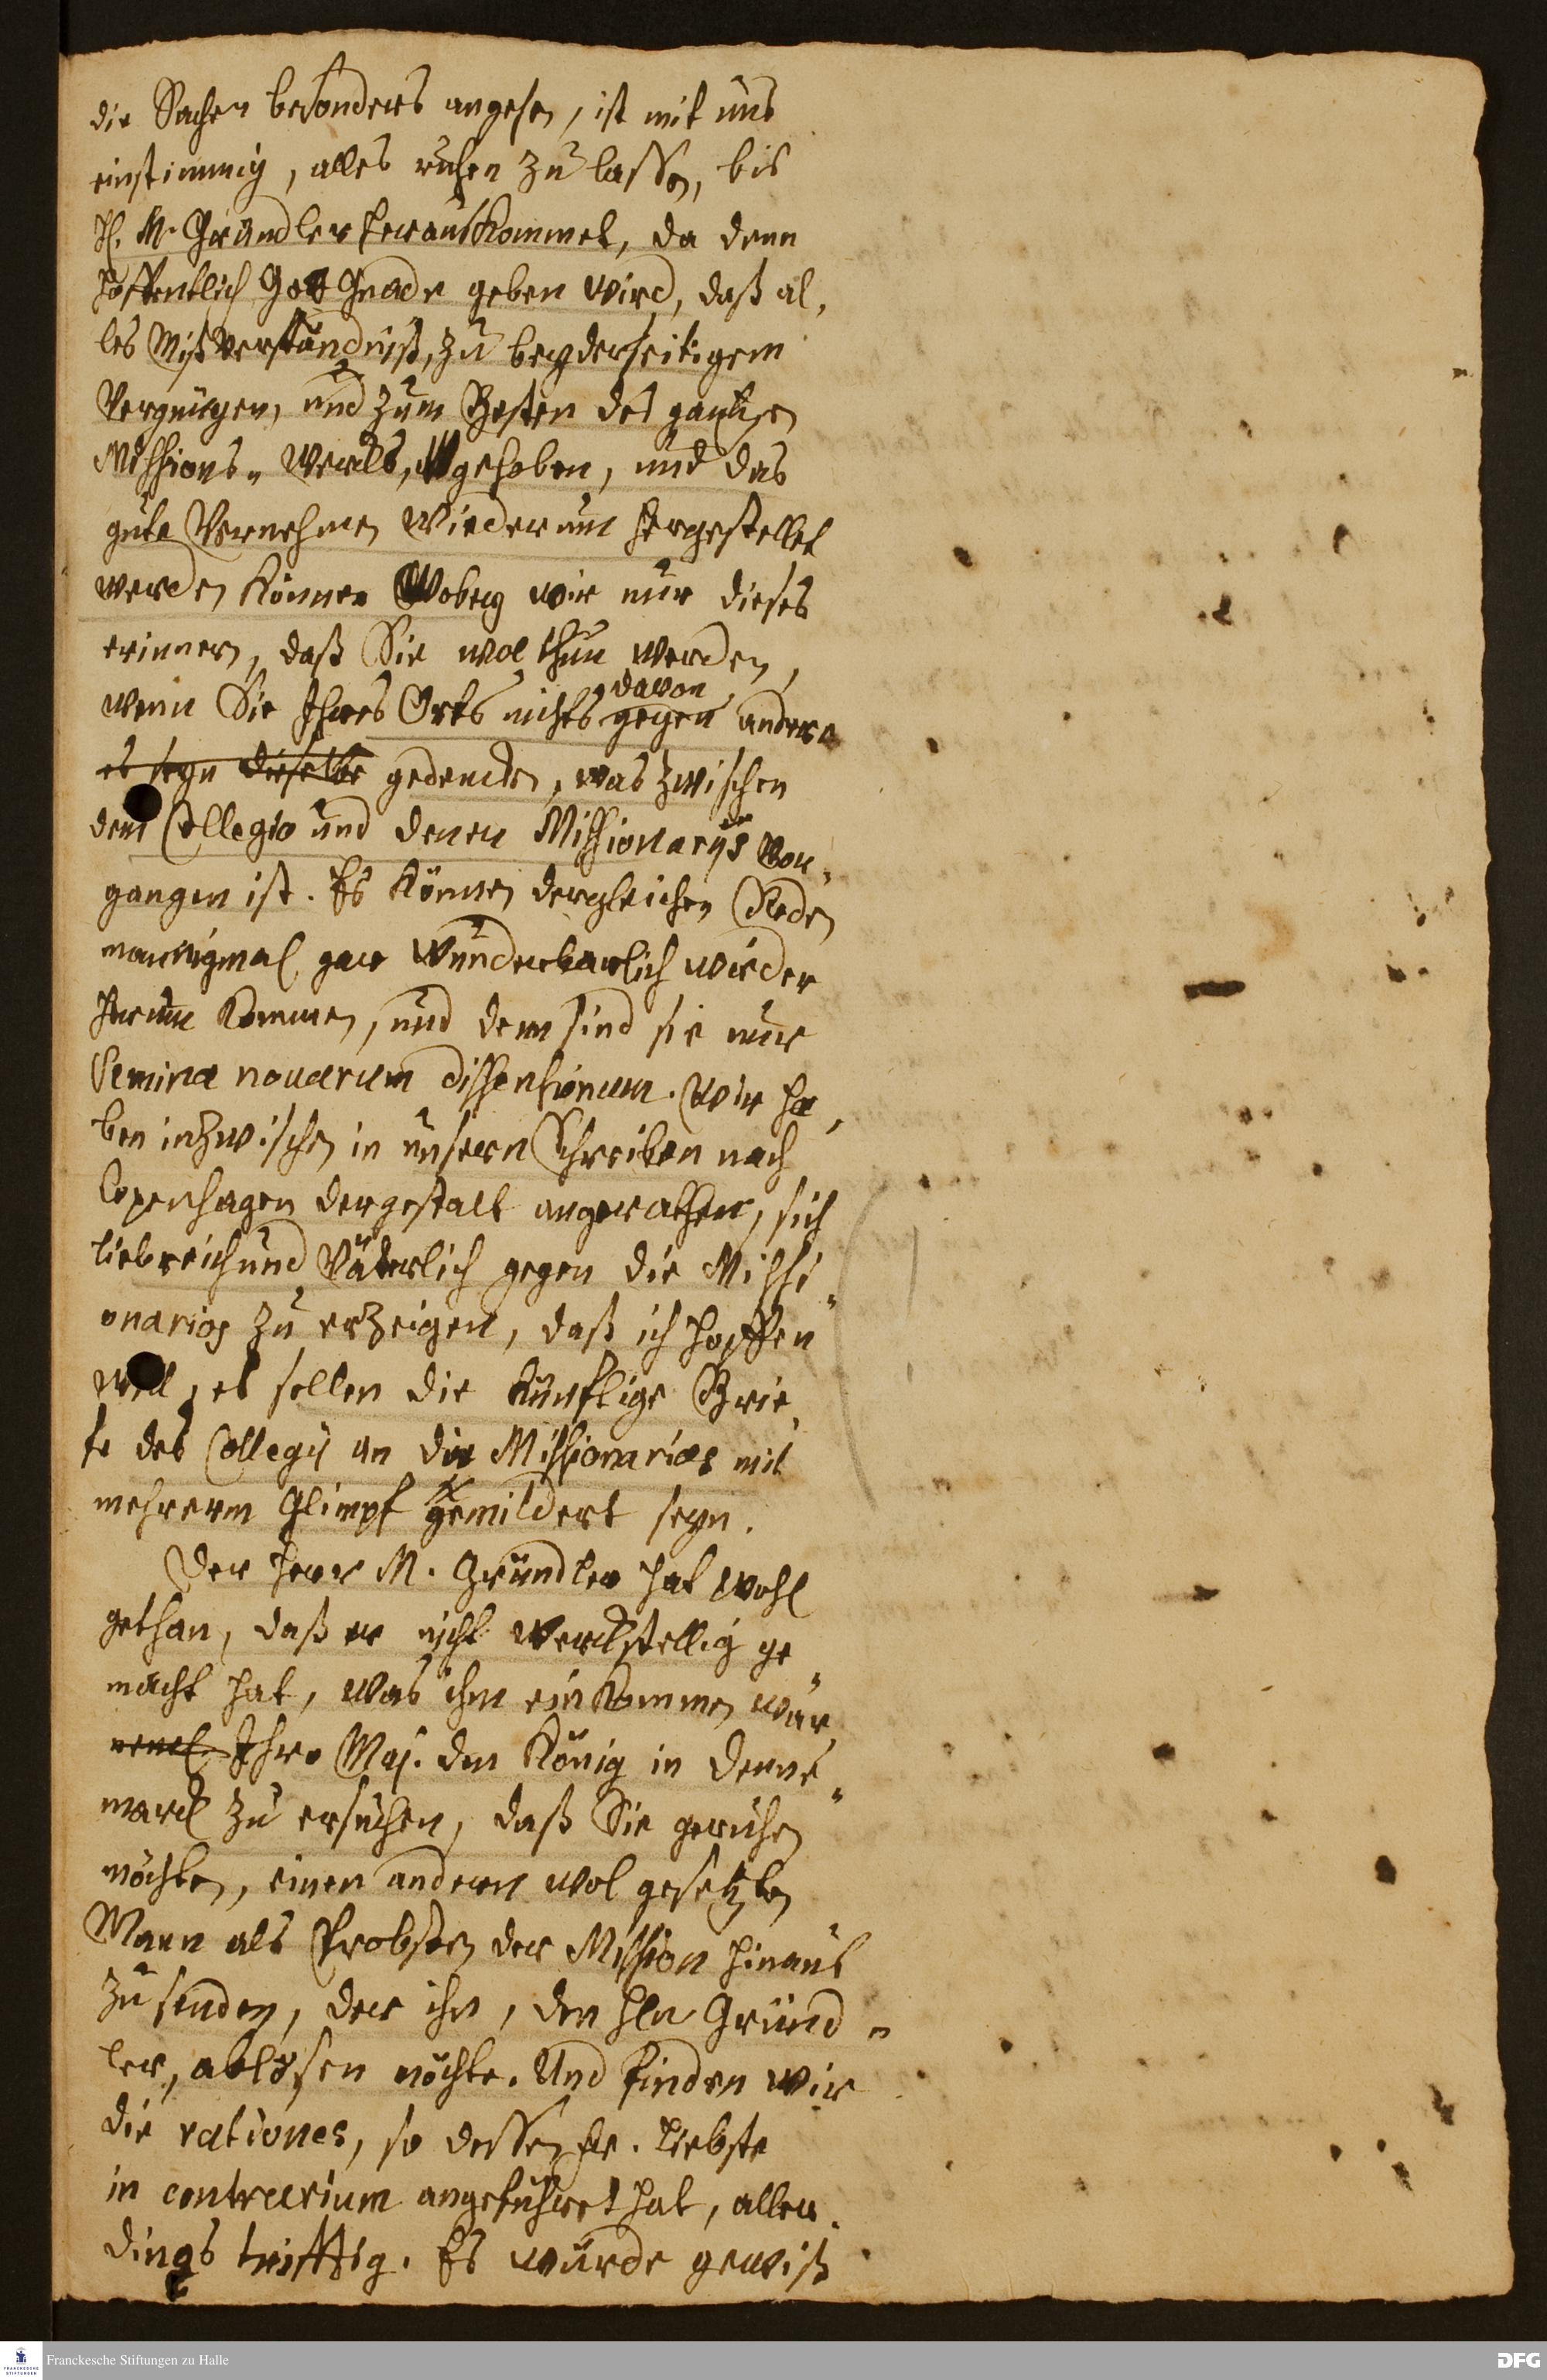 die Sachen besonders angesen, ist mit uns
einstimmig, alles ruhen zu lassen, bis
H. M. Gründler herauskommet, da denn
hoffentlich Gott Gnade geben wird, daß al-
les Mißverständniß, zu beyderseitigem
Vergnügen, und zum Besten des gantzen
Missions-Wercks, gehoben, und das
gute Vernehmen wiederum hergestellet
werden könne. Wobey wir nur dieses
erinnern, daß Sie wol thun werden,
wenn Sie Ihres Orts nichts davon gegen andere
es seyn dieselbe gedencken, was zwischen
dem Collegio und denen Missionarijs vor-
gangen ist. Es können dergleichen Reden
mannigmal gar wunderbarlich wieder
herum kommen, und denn sind sie nur
Semina novarum dissensionum. Wir ha-
ben inzwischen in unsern Schreiben nach
Copenhagen dergestalt angerathen, sich
liebreich und Väterlich gegen die Missi-
onarios zu erzeigen, daß ich hoffen
will, es sollen die künftige Brie-
fe des Collegij an die Missionarios mit
mehrerm Glimpf gemildert seyn.
Der Herr M. Gründler hat wohl
gethan, daß er nicht werckstellig ge-
macht hat, was ihm einkommen war
neml. Ihro Maj. den König in Denne-
marck zu ersuchen, daß Sie geruhen
möchten, einen andern wol gesetzten
Mann als Probsten der Mission hinaus
zu senden, der ihn, den Hln Gründ-
ler, ablösen möchte. Und finden wir
die rationes, so dessen Fr. Liebste
in contrarium angeführet hat, aller-
dings trifftig. Es würde gewiß
Franckesche Stiftungen zu Halle
DFG